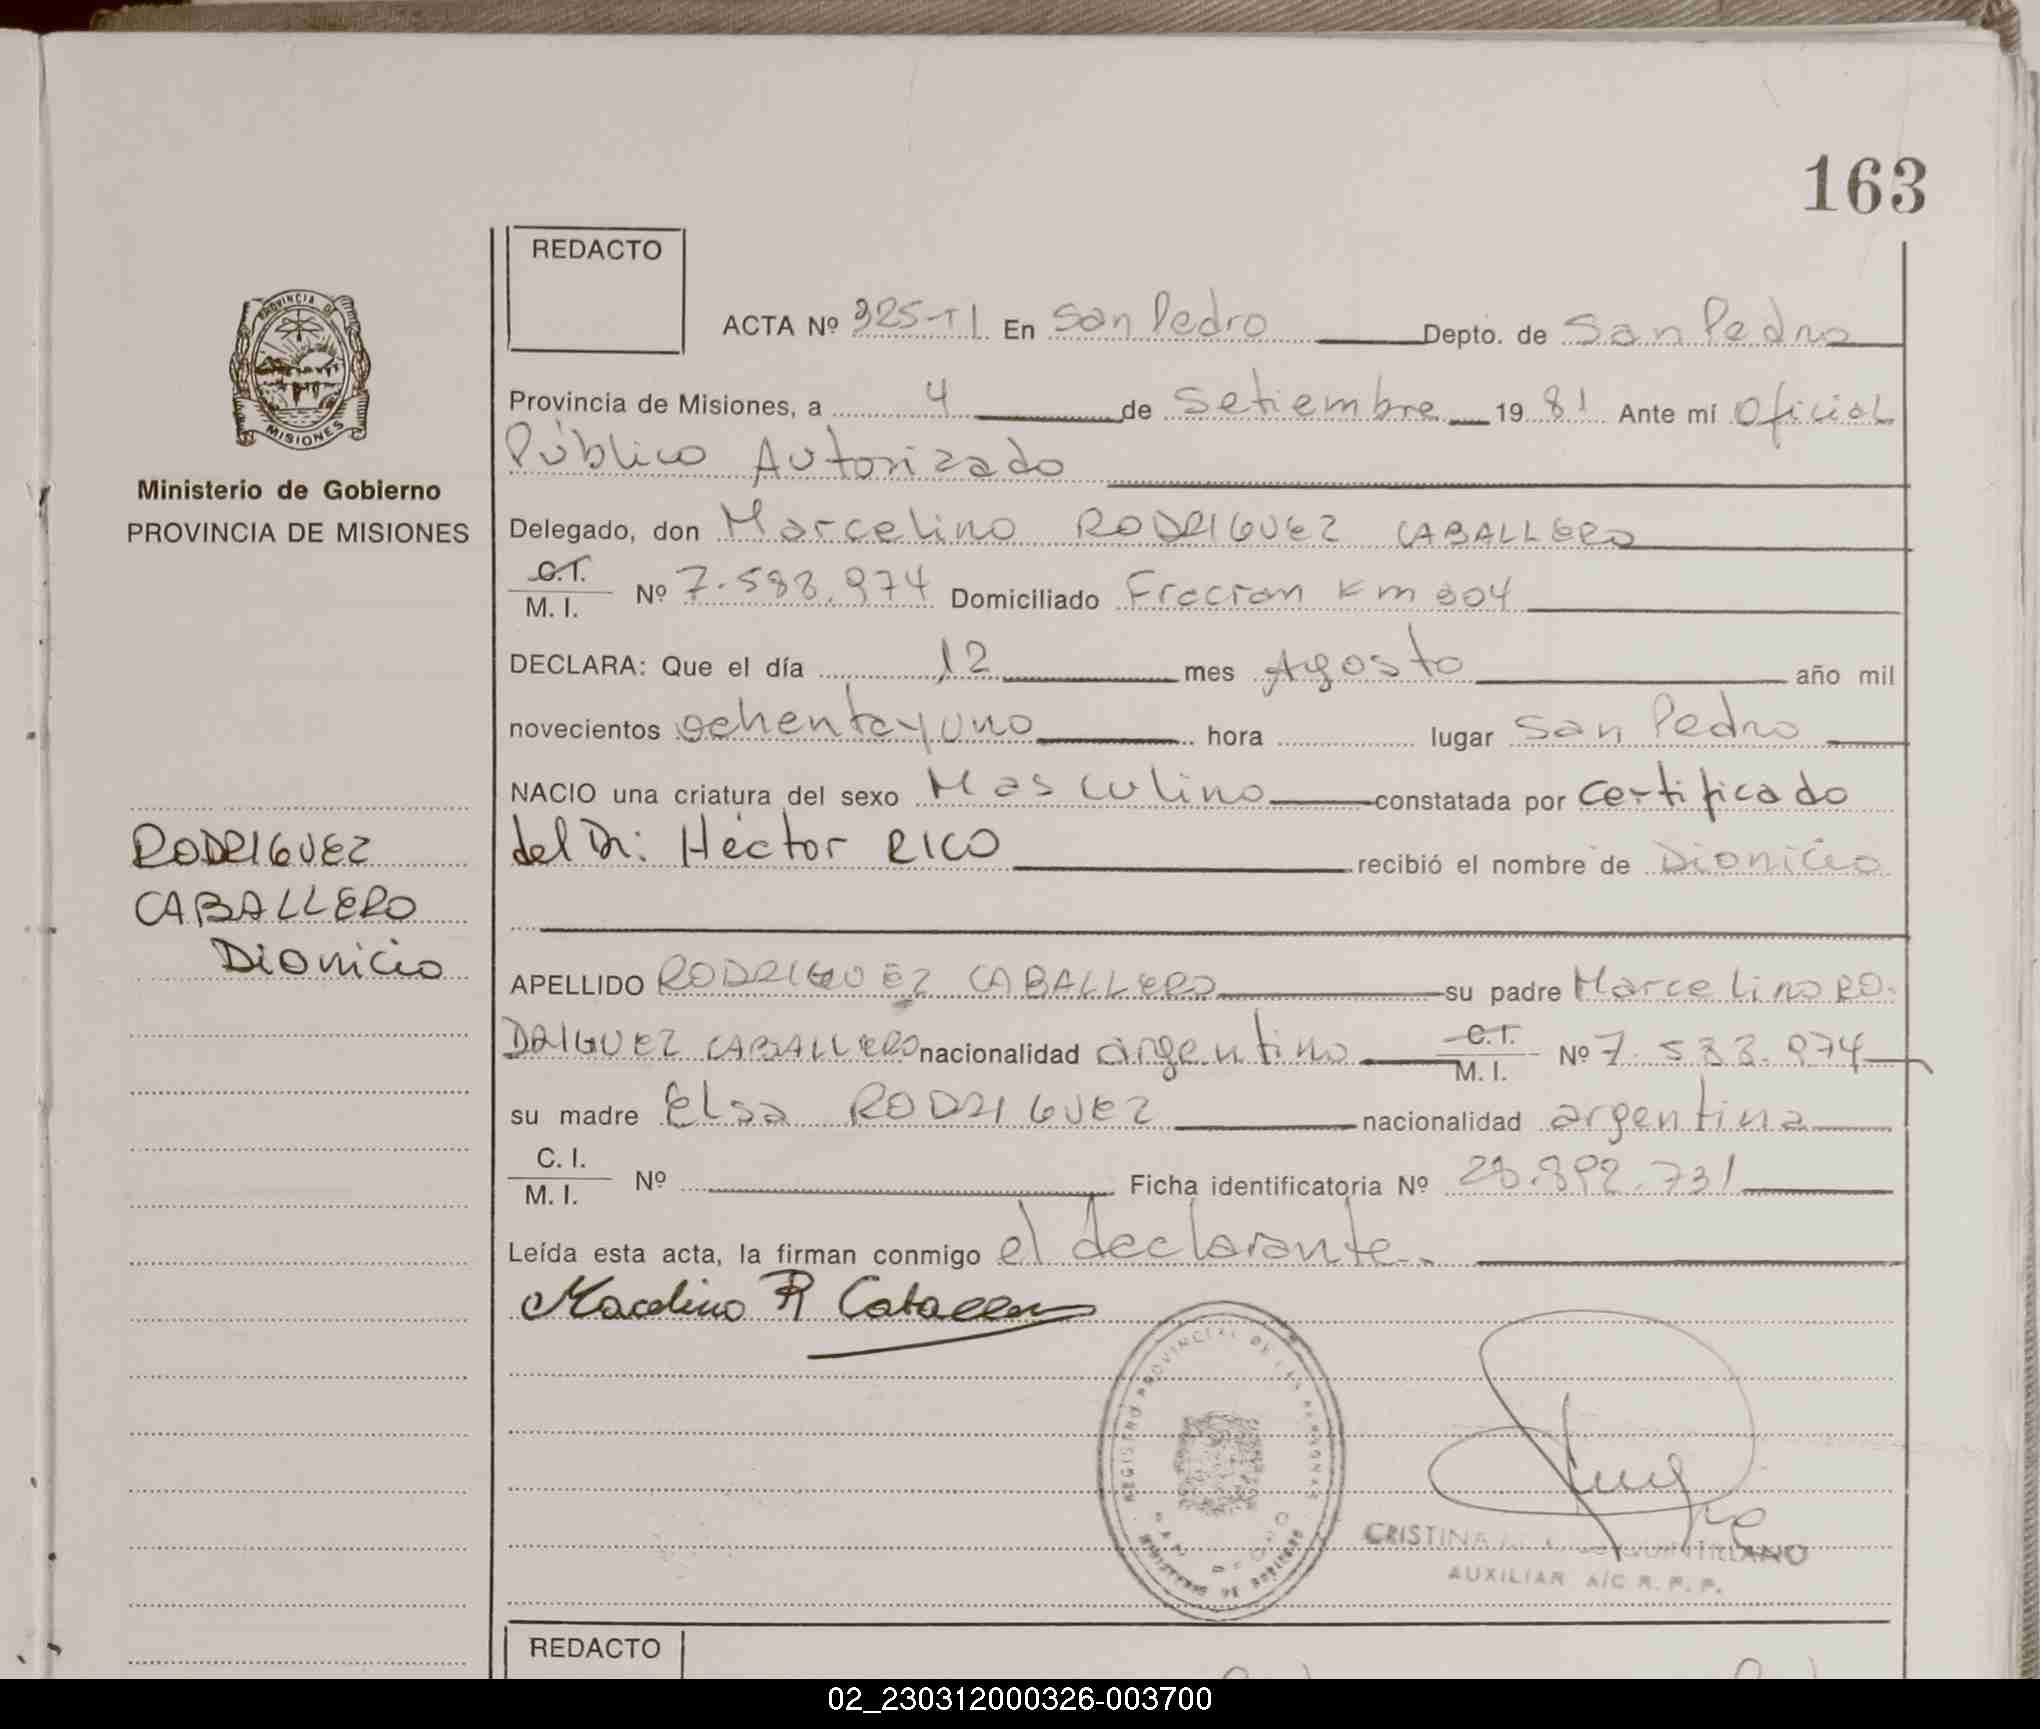 163
REDACTO
PROVINCIA DE
MISIONES
Ministerio de Gobierno
PROVINCIA DE MISIONES
ACTA Nº 325-TI En San Pedro Depto. de San Pedro
Provincia de Misiones, a 4 de Setiembre 1981 Ante mí Oficial
Público Autorizado
Delegado, don Marcelino RODRIGUEZ CABALLERO
C.I. M. I. Nº 7.583.974 Domiciliado Fracran Km 304
DECLARA: Que el día 12 mes Agosto año mil
novecientos ochentayuno hora lugar San Pedro
NACIO una criatura del sexo Masculino constatada por certificado
del Dr: Héctor RICO recibió el nombre de Dionicio
RODRIGUEZ
CABALLERO
Dionicio
APELLIDO RODRIGUEZ CABALLERO su padre Marcelino RO-
DRIGUEZ CABALLERO nacionalidad argentino C.I. M. I. Nº 7.583.974
su madre Elsa RODRIGUEZ nacionalidad argentina
C. I. M. I. Nº Ficha identificatoria Nº 28.892.731
Leída esta acta, la firman conmigo el declarante.
Macelino R Caballero
REGISTRO PROVINCIAL DE LAS PERSONAS
CRISTINA QUINTILLANO
AUXILIAR A/C R. P. P.
REDACTO
02_230312000326-003700